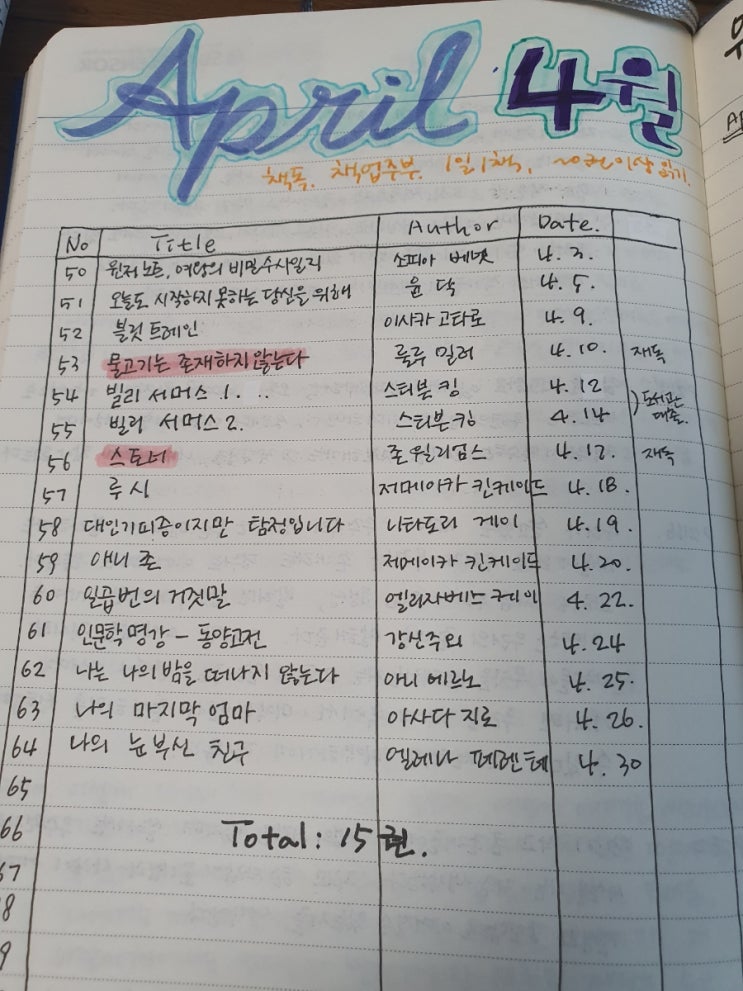 April 4월
책독. 책업주부. 1일1책, 20권이상 읽기.
No Title Author Date.
50 윈저노트, 여왕의 비밀수사일지 소피아 베넷 4. 3.
51 오늘도 시작하지 못하는 당신을 위해 윤 닥 4. 5.
52 불릿 트레인 이사카 고타로 4. 9.
53 물고기는 존재하지 않는다 룰루 밀러 4. 10. 재독
54 빌리 서머스 1. 스티븐 킹 4. 12
55 빌리 서머스 2. 스티븐 킹 4. 14 도서관 대출.
56 스토너 존 윌리엄스 4. 17. 재독
57 루시 저메이카 킨케이드 4. 18.
58 대인기피증이지만 탐정입니다 니타도리 게이 4. 19.
59 애니 존 저메이카 킨케이드 4. 20.
60 일곱번의 거짓말 엘리자베스 케이 4. 22.
61 인문학 명강 - 동양고전 강신주외 4. 24
62 나는 나의 밤을 떠나지 않는다 아니 에르노 4. 25.
63 나의 마지막 엄마 아사다 지로 4. 26.
64 나의 눈부신 친구 엘레나 페란테 4. 30
65
66 Total: 15권.
67
8
9